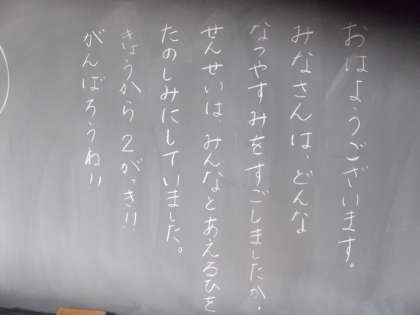 おはようございます。
みなさんは、どんな
なつやすみをすごしましたか。
せんせいは、みんなとあえるひを
たのしみにしていました。
きょうから2がっき!!
がんばろうね!!